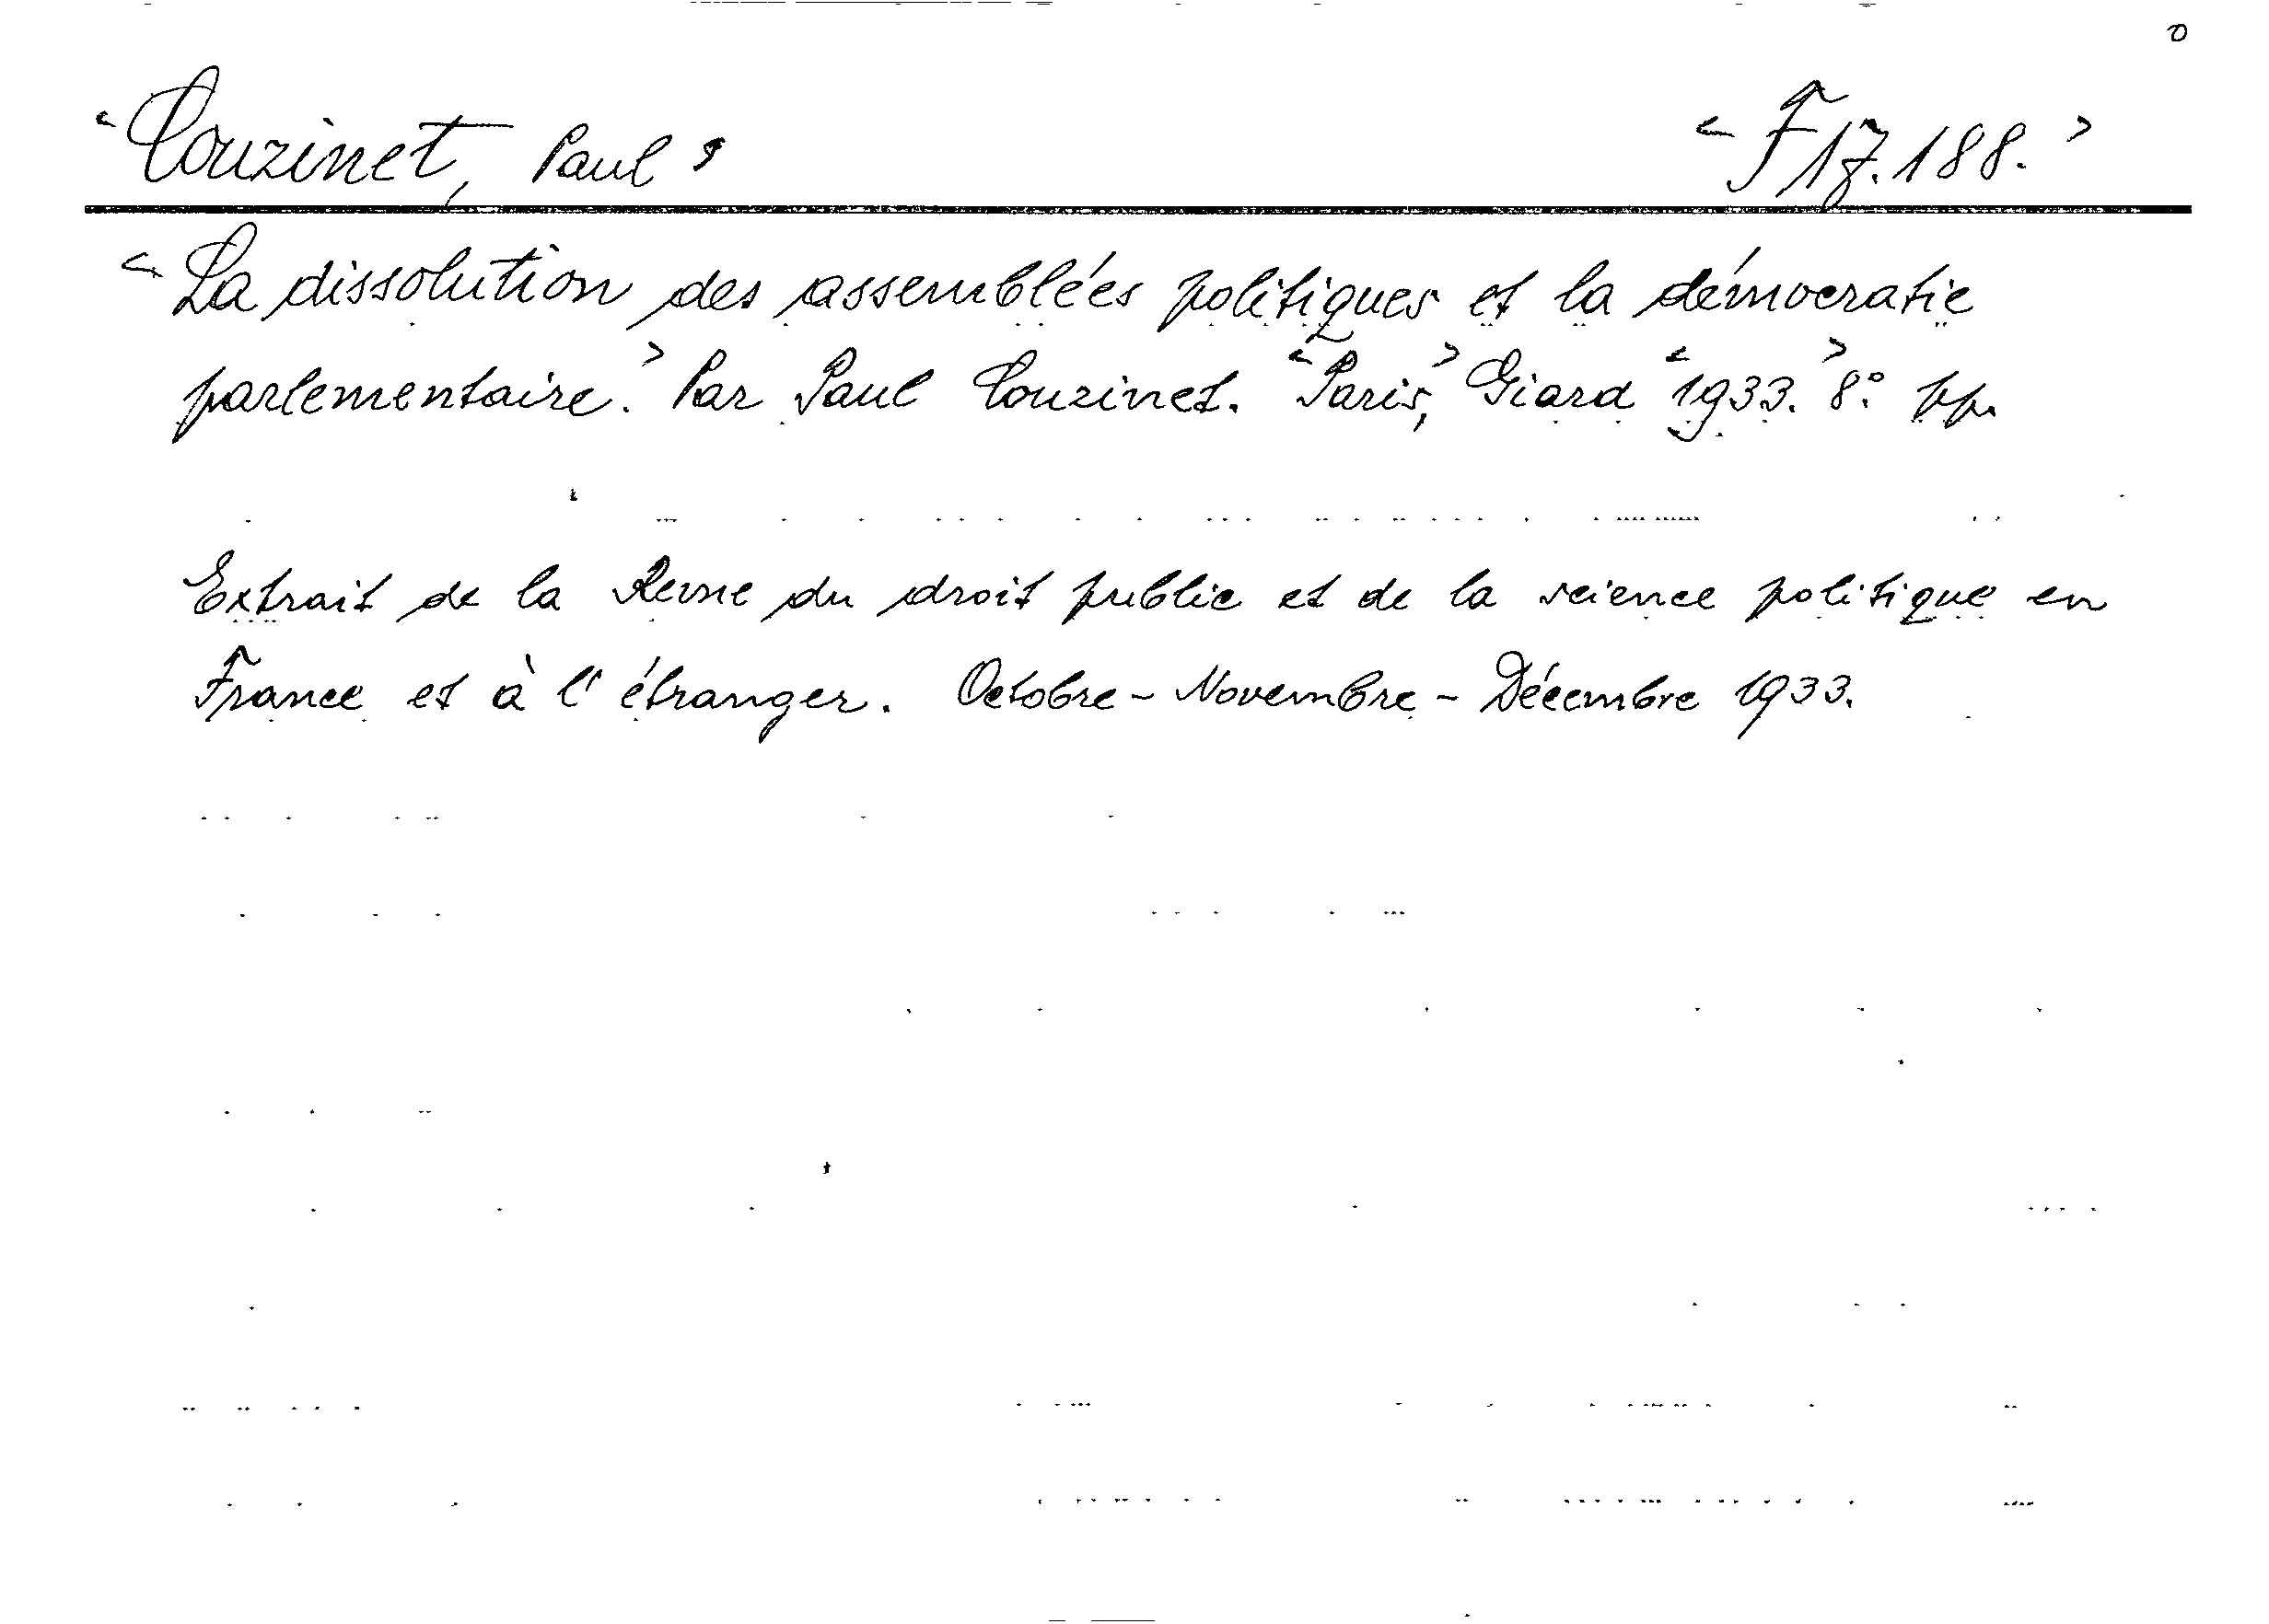 "Couzinet, Paul" <F17.188.>
<La dissolution des assemblées politiques et la démocratie
parlementaire.> Par Paul Couzinet. <Paris,> Giard <1933.> 8° pp.
Extrait de la Revue du droit public et de la science politique en
France et à l'étranger. Octobre - Novembre - Décembre 1933.